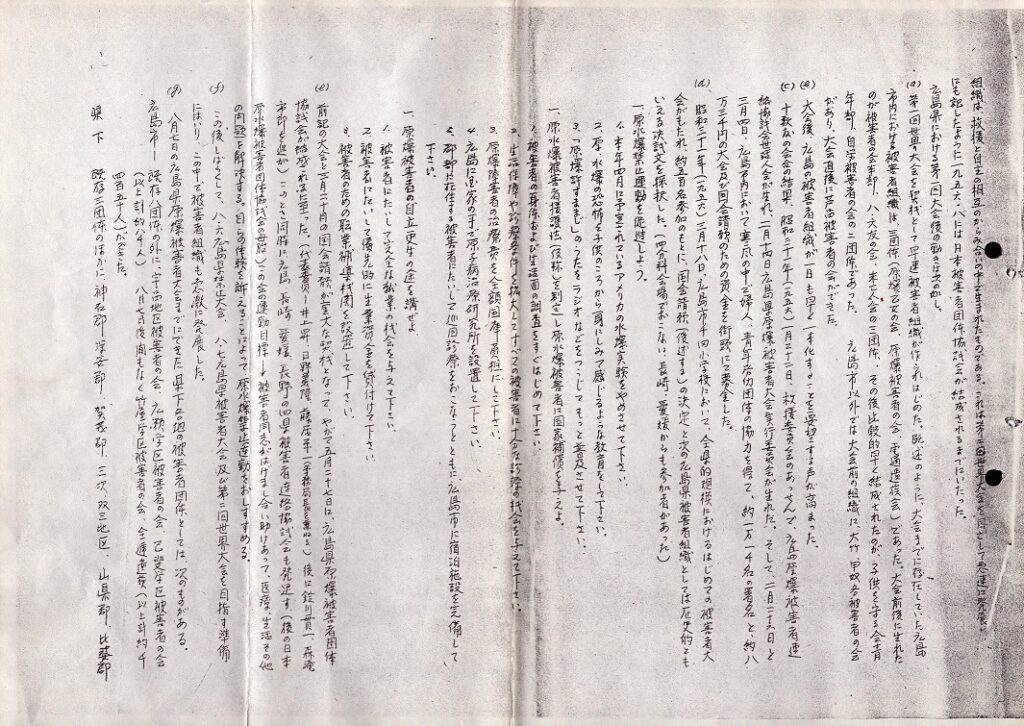 組織は、救援と自主の相互のからみ合いの中で生まれたものである。これは第一回世界大会を図として急速に発展し
にも記したように一九五六・八には日本被害者団体協議会が結成されるまでにいたった。
広島県における第一回大会後の動きは次の如し。
(a) 第一回世界大会を契機として早速に被害者組織が作られはじめた。既述のように、大会までに存在していた広島
市内における被害者組織は、三団体（原爆乙女の会、原爆被害者の会、全逓遺族会）であった。大会前後に生れた
のが被害者の会本部、八・六友の会、未亡人会の三団体、その後比較的早く結成されたのが、子供を守る会青
年部、自労被害者の会の二団体であった。広島市以外では大会前の組織に大竹、甲奴各被害者の会
があり、大会直後に芦品被害者の会ができた。
(b) 大会後、広島の被害者組織が一日も早く一本化すべきことを要望する声が高まった。
(c) 十数次の会合の結果、昭和三十一年（一九五六）一月二十二日、救援委員会のあっせんで、広島原爆被害者連
絡協議会世話人会が生れ、二月十四日広島県原爆被害者大会実行委員会が生れた。そして、二月二十六日と
三月四日、広島市内において、寒風の中で婦人、青年労幼団体の協力を得て、約一万一千名の署名と、約八
万三千円の大会及び国会請願のための資金を街頭にて募金した。
(d) 昭和三十一年（一九五六）三月十八日、広島市千田小学校において、全県的規模におけるはじめての被害者大
会がもたれ、約三百名参加のもとに、国会請願（後述する）の決定と次の広島県被害者組織としては歴史的とも
いえる決議文を採択した。（四分科会場でおこない、長崎、愛媛からも参加者があった）
一、原水爆禁止運動を促進しよう。
1、本年四月に予定されているアメリカの水爆実験をやめさせて下さい。
2、原・水爆の恐怖を子供のころから身にしみて感じるような教育をして下さい。
3、「原爆許すまじ」のうたをラジオなどをつうじてもっと普及させて下さい。
一、原水爆被害者援護法（仮称）を制定し原水爆被害者に国家補償を与えよ。
1、被害者の身体および生活面の調査をすぐはじめて下さい。
2、生活保障や診療条件を拡大してすべての被害者に十分な診療の機会を与えて下さい。
3、原爆障害者の治療費を全額国庫負担にして下さい。
4、広島に国家の手で原子病治療研究所を設置して下さい。
5、郡部に在住する被害者にたいして巡回診療をおこなうとともに広島市に宿泊施設を完備して
下さい。
一、原爆被害者の自立更生の途を講ぜよ。
1、被害者にたいして完全な就業の機会を与えて下さい。
2、被害者にたいして優先的に生業資金を貸付けて下さい。
3、被害者のための職業補導機関を設置して下さい。
(e) 前記の大会と三月二十日の国会請願が重大な契機となって、やがて五月二十七日は、広島県原爆被害者団体
協議会が結成されるに至った。（代表委員―井上昇、日詰忍、藤居平一（事務局長を兼ねる）後に鈴川貫一、森滝
市郎を追加）このとき同時に広島、長崎、愛媛、長野の四県被害者連絡協議会も発足す（後の日本
原水爆被害者団体協議会の母胎）この会の運動目標―被害者同志がはげまし合い助けあって、医療、生活その他
の問題を解決する。自らの体験を訴えることによって、原水爆禁止運動をおしすすめる。
(f) この後しばらくして、八・六広島県禁止大会、八・七広島県被害者大会及び第二回世界大会を目指す準備
にはいり、この中で被害者組織も急激に発展した。
(g) 八月七日の広島県原爆被害者大会までにできた県下各地の被害者団体としては、次のものがある。
広島市―既存八団体の外に、宇品地区被害者の会、広瀬学区被害者の会、己斐学区被害者の会
（以上計約八千人）八月七日後間もなく竹屋学区被害者の会、全逓遺族（以上計約千
四百五十人）ができた。
県下 既存三団体のほかに神石郡、深安郡、賀茂郡、三次、双三地区、山県郡、比婆郡